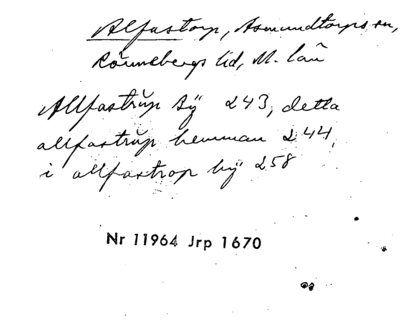 Alfastorp, Asmundtorps sn,
Rönnebergs hd, M. län
Allfastrŭp Bÿ 243, detta
allfastrŭp hemman 244,
i allfastrop bÿ 258
Nr 11964 Jrp 1670